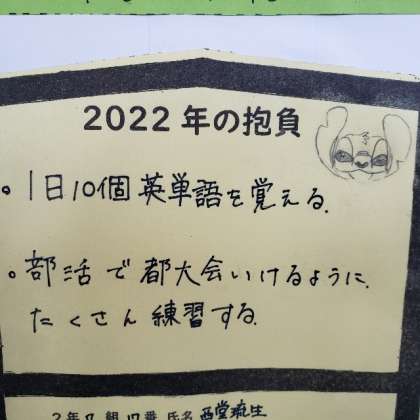 2022年の抱負
。1日10個英単語を覚える.
。部活で都大会いけるように、
たくさん練習する.
2年 組 17番 氏名